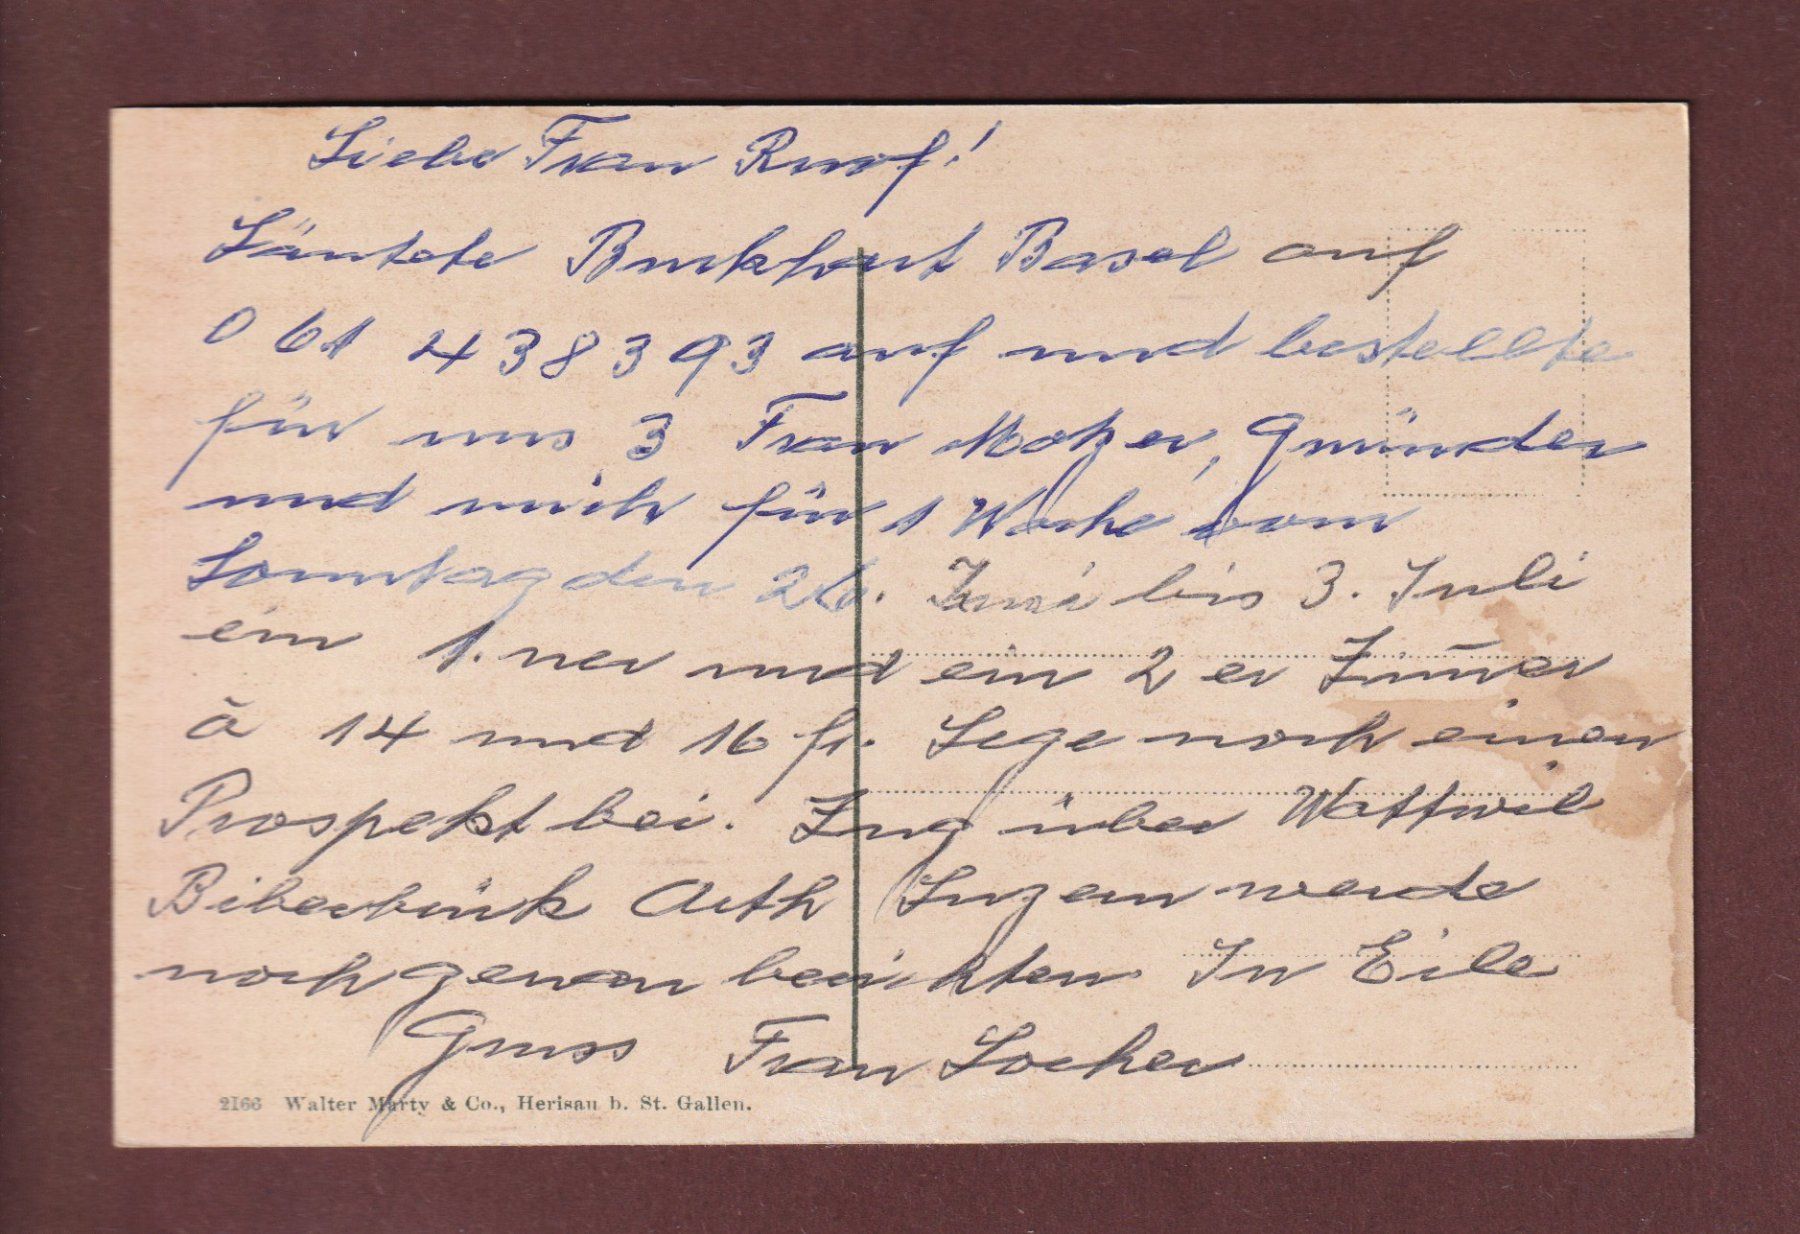 Liebe Frau Ruof!
Läutete Burkhart Basel auf
061 438393 auf und bestellte
für uns 3 Frau Motzer, Gmünder
und mich für 1 Woche vom
Sonntag den 26. Juni bis 3. Juli
ein 1.ner und ein 2 er Zim̄er
à 14 und 16 fr. Lege noch einen
Prospekt bei. Zug über Wattwil
Biberbrück Arth Luzern werde
noch genau berichten In Eile
Gruss Frau Locher
2166 Walter Marty & Co., Herisau b. St. Gallen.